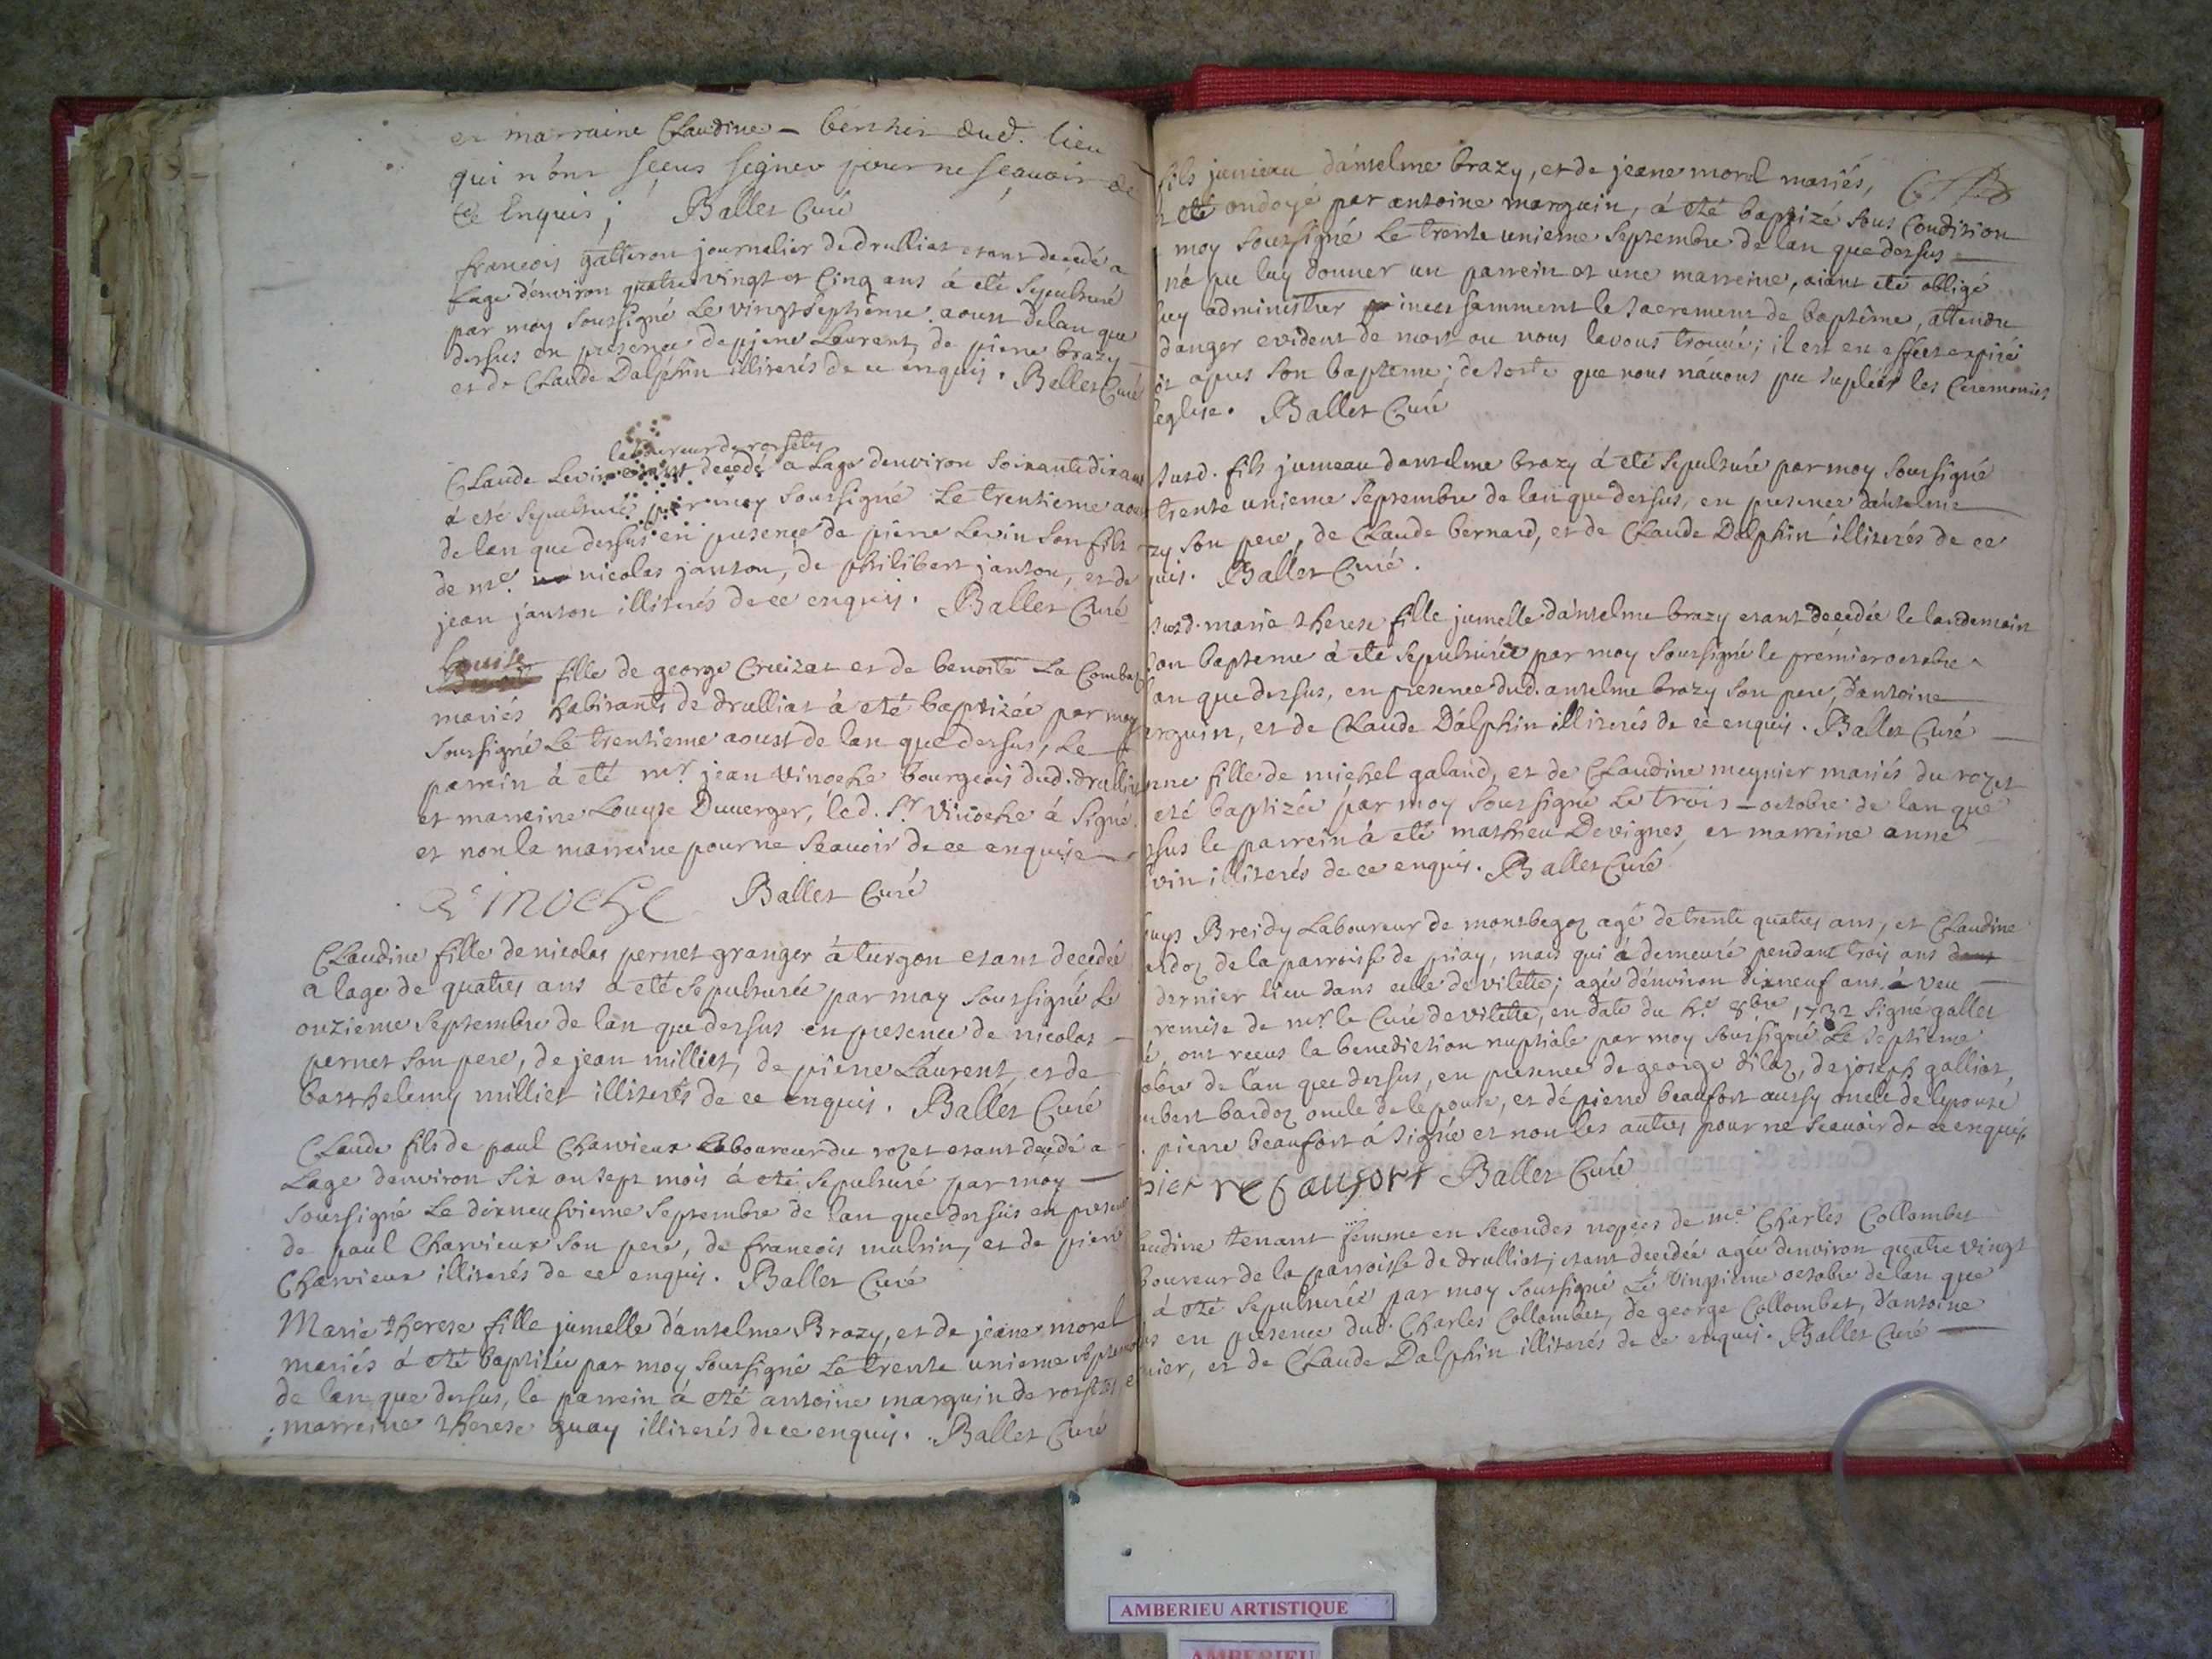 et marraine Claudine - berthet dud. lieu
qui n'ont sçeus signer pour ne sçavoir de
ce Enquis j Ballet Curé
francois gatteron journalier de drulliat etant decedé a
lage d'environ quatre vingt et Cinq ans à eté sepulturé
par moy soussigné Le vingtseptieme aoust de lan que
dessus en presence de pierre Laurent, de pierre brazy
et de Claude Dalphin illiterés de ce enquis. Ballet Curé
laboureur de rossettes
Claude Levin etant decedé a lage denviron soixante dix ans
à eté sepulturé par moy soussigné Le trentieme aoust
de lan que dessus en presence de pierre Levin son fils
de me. nicolas janton, de philibert janton, et de
jean janton illiterés de ce enquis. Ballet Curé
Louise
fille de george Croizat et de benoite La Combe
mariés habitants de drulliat à eté baptizée par moy
soussigné Le trentieme aoust de lan que dessus, Le
parrein à eté mr. jean vinoche bourgeois dud. drulliat
et marreine Louyse Duverger, led. Sr. vinoche à signé
et non la marreine pour ne scavoir de ce enquise
Vinoche Ballet Curé
Claudine fille de nicolas pernet granger à turgon etant decedée
a lage de quatres ans a eté sepulturée par moy soussigné Le
onzieme septembre de lan que dessus en presence de nicolas
pernet son pere, de jean milliet, de pierre Laurent, et de
barthelemy milliet illiterés de ce enquis. Ballet Curé
Claude fils de paul Charvieux Laboureur du rozet etant decedé a
Lage denviron six ou sept mois à eté sepulturé par moy
soussigné Le dixneufvieme septembre de lan que dessus en presence
de paul Charvieux son pere, de francois mulsin, et de pierre
Charvieux illiterés de ce enquis. Ballet Curé
Marie therese fille jumelle d'antelme Brazy, et de jeane morel
mariés à eté baptizée par moy soussigné Le trente unieme septembre
de lan que dessus, le parrein à eté antoine marguin de rossettes, et
marreine therese guay illiterés de ce enquis. Ballet Curé
fils jumeau d'antelme brazy, et de jeane morel mariés,
eté ondoyé par antoine marguin, à eté baptizé sous Condition
moy soussigné Le trente unieme septembre de lan que dessus
na pu luy donner un parrein et une marreine, aiant eté obligé
luy administrer incessamment le sacrement de baptême, attendu
danger evident de mort ou nous lavons trouvé; il est en effect expiré
apres son baptême; de sorte que nous n'avons pu supleer les Ceremonies
leglise. Ballet Curé
susd. fils jumeau dantelme brazy à eté sepulturé par moy soussigné
trente unieme septembre de lan que dessus, en presence dantelme
zy son pere, de Claude bernard, et de Claude Dalphin illiterés de ce
quis. Ballet Curé.
susd. marie therese fille jumelle dantelme brazy etant decedée le landemain
son bapteme à eté sepulturée par moy soussigné le premier octobre
lan que dessus, en presence dud. antelme brazy son pere, d'antoine
arguin, et de Claude Dalphin illiterés de ce enquis. Ballet Curé
nne fille de michel galand, et de Claudine meynier mariés du rozet
eté baptizée par moy soussigné Le trois octobre de lan que
ssus le parrein à eté mathieu Devignes, et marreine anne
vin illiterés de ce enquis. Ballet Curé
ouys Breidy Laboureur de montbegoz agé de trente quatres ans, et Claudine
de la parroisse de priay, mais qui à demeuré pendant trois ans
dernier lieu dans celle de vilette; agée denviron dixneuf ans à veu
remise de mr. le Curé de vilette, en date du 8bre 1732 signé gallet
é, ont receus la benediction nuptiale par moy soussigné Le septieme
obre de lan que dessus, en presence de george dilaz, de joseph galliot,
bardoz oncle de lepouse, et de pierre beaufort aussy oncle de lepouse
pierre beaufort à signé et non les autres pour ne scavoir de ce enquis
pier re beaufort Ballet Curé
audine tenant femme en secondes nopces de me. Charles Collombet
boureur de la parroisse de drulliat, etant decedée agée denviron quatre vingt
à eté sepulturée par moy soussigné Le vingtieme octobre de lan que
us en presence dud. Charles Collombet, de george Collombet, d'antoine
nier, et de Claude Dalphin illiterés de ce enquis. Ballet Curé
AMBERIEU ARTISTIQUE
AMBERIEU